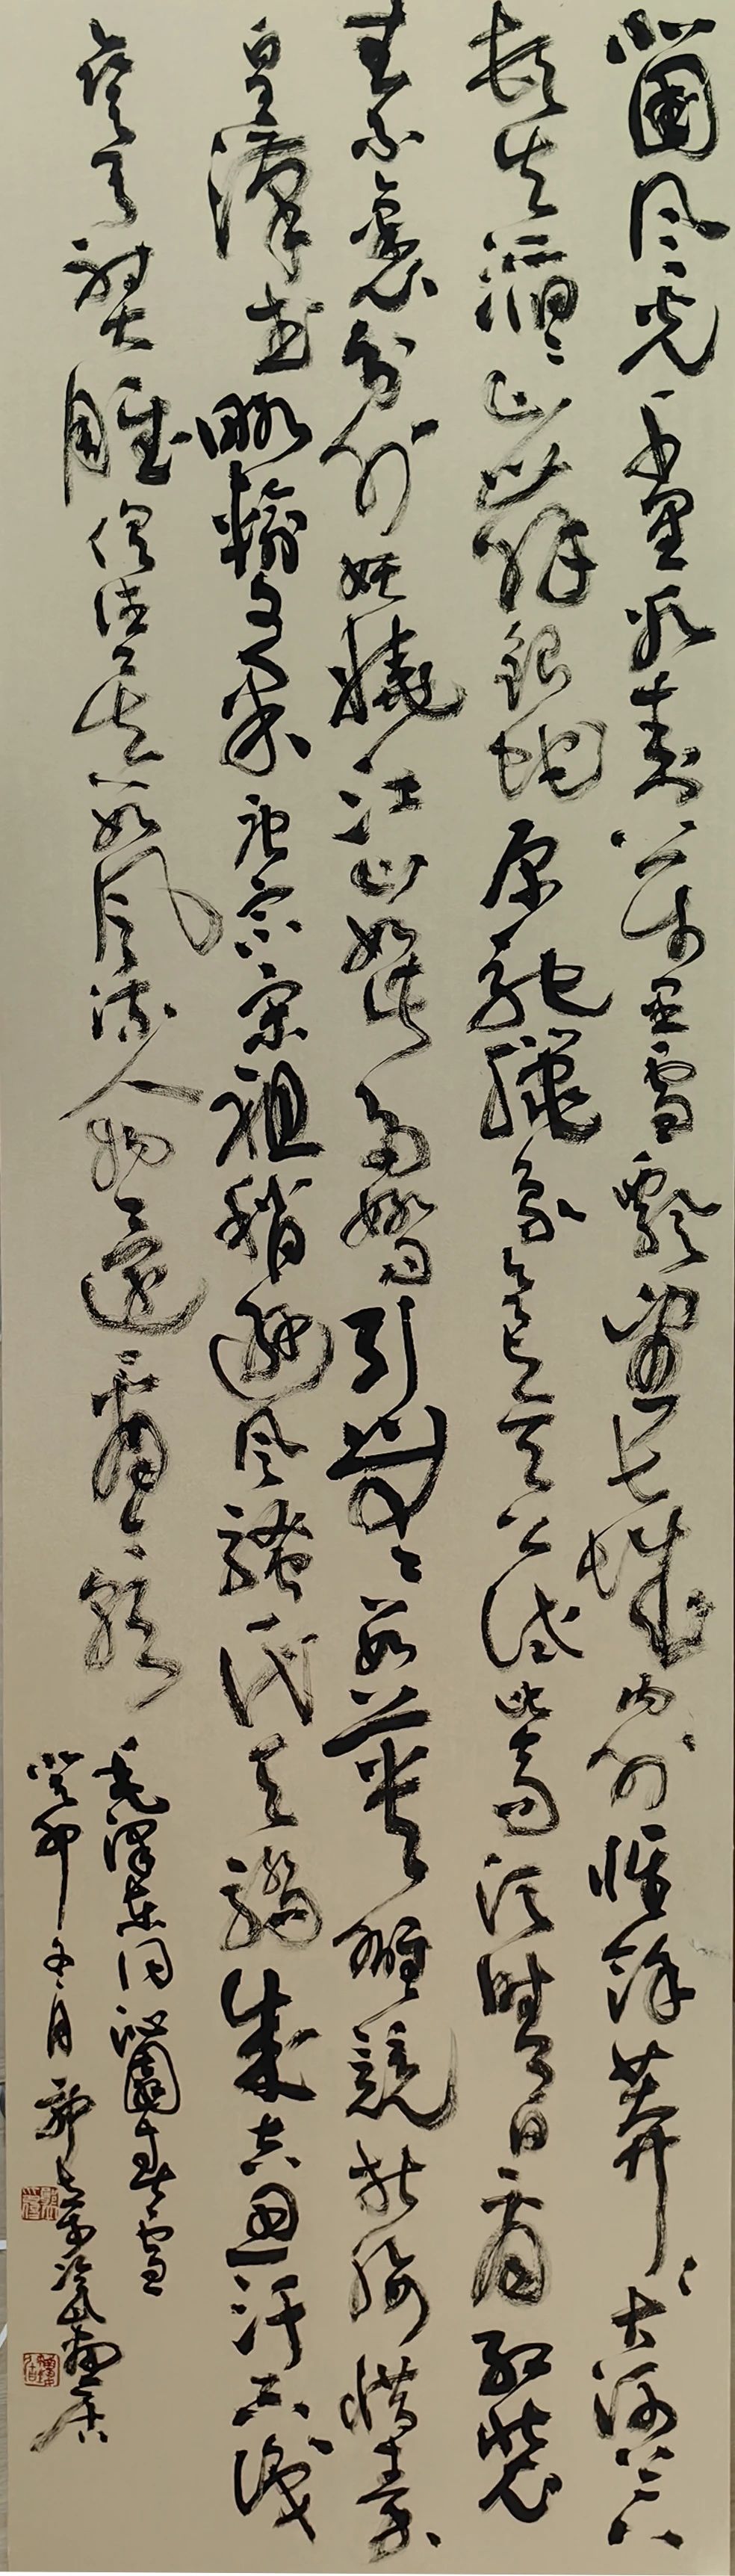 北國風光千里冰封萬里雪飄望長城內外惟餘莽々大河上下
頓失滔々山舞銀蛇原馳蠟象欲與天公試比高須晴日看紅裝
素裹分外妖嬈江山如此多嬌引無數英雄競折腰惜秦
皇漢武略輸文采唐宗宋祖稍遜風騷一代天驕成吉思汗只識
彎弓射大雕俱往矣數風流人物還看今朝
毛澤東词沁園春雪
癸卯冬月郭